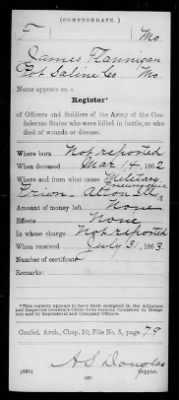 (CONFEDERATE.)
F Mo.
James Flannigan
Pvt Saline Co. Mo.
Name appears on a
Register*
of Officers and Soldiers of the Army of the Confederate States who were killed in battle, or who died of wounds or disease.
Where born Not reported
When deceased Mar 14, 1862
Where and from what cause Military
Prison - Alton Ill Pneumonia
Amount of money left None
Effects None
In whose charge Not reported
When received July 3, 1863.
Number of certificate
Remarks:
*This register appears to have been compiled in the Adjutant and Inspector General's Office from reports furnished by Hospitals and by Regimental and Company Officers.
Confed. Arch., Chap. 10, File No. 5, page 79
A S Douglas
Copyist.